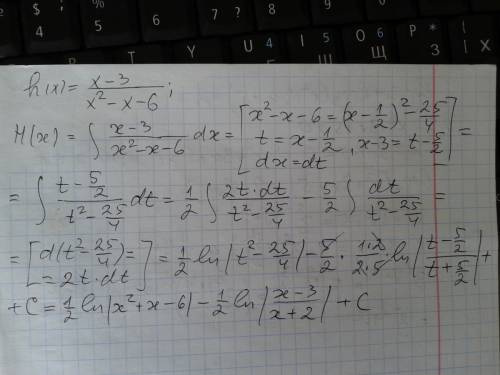 % : 7 ? 8 9 0 - =
$ ; 4 5 6
R T Y U Г 4 I Ш 5 O Щ 6 P З * I X
h(x) = x-3 / x² - x - 6 ;
H(x) = ∫ x-3 / x²-x-6 dx = [ x² - x - 6 = (x - 1/2)² - 25/4 t = x - 1/2 , x-3 = t - 5/2 dx = dt ] =
= ∫ t - 5/2 / t² - 25/4 dt = 1/2 ∫ 2t·dt / t² - 25/4 - 5/2 ∫ dt / t² - 25/4 =
= [ d(t² - 25/4) = = 2t·dt ] = 1/2 ln|t² - 25/4| - 5/2 · 1·2 / 2·5 ln| t - 5/2 / t + 5/2 | +
+ C = 1/2 ln|x² + x - 6| - 1/2 ln| x-3 / x+2 | + C